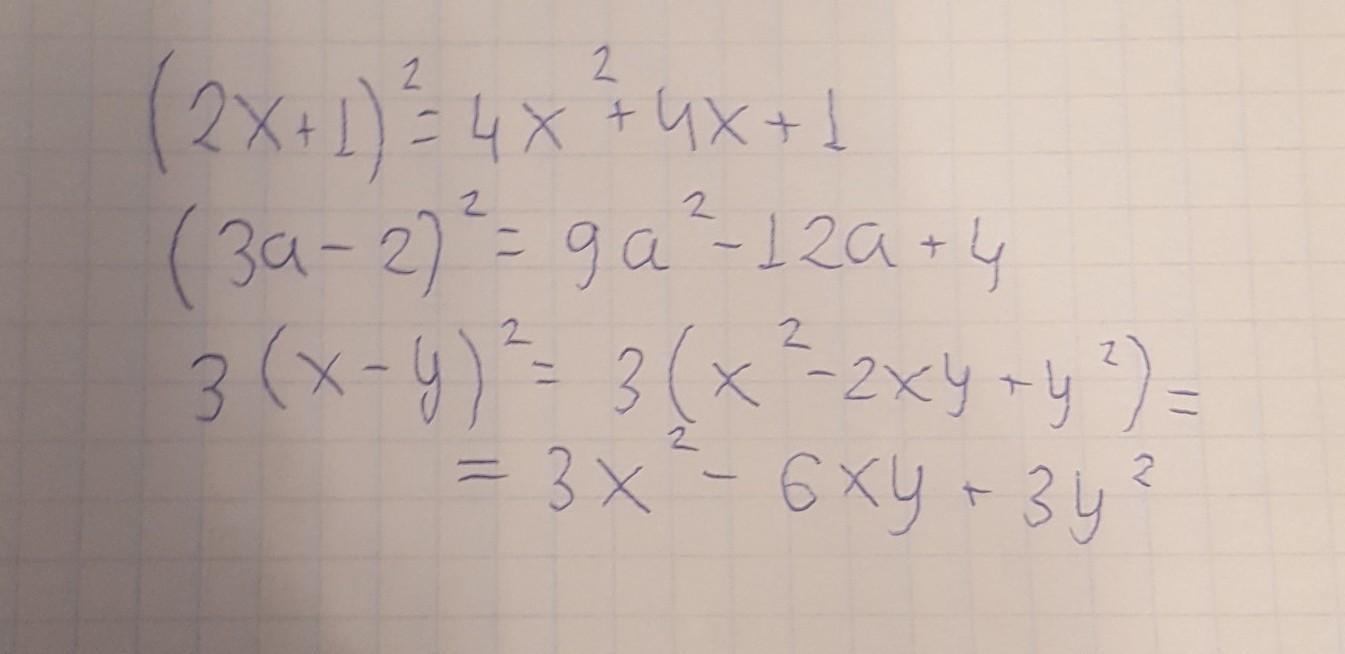 (2x+1)²=4x²+4x+1
(3a-2)²=9a²-12a+4
3(x-y)²=3(x²-2xy+y²)=
=3x²-6xy+3y²